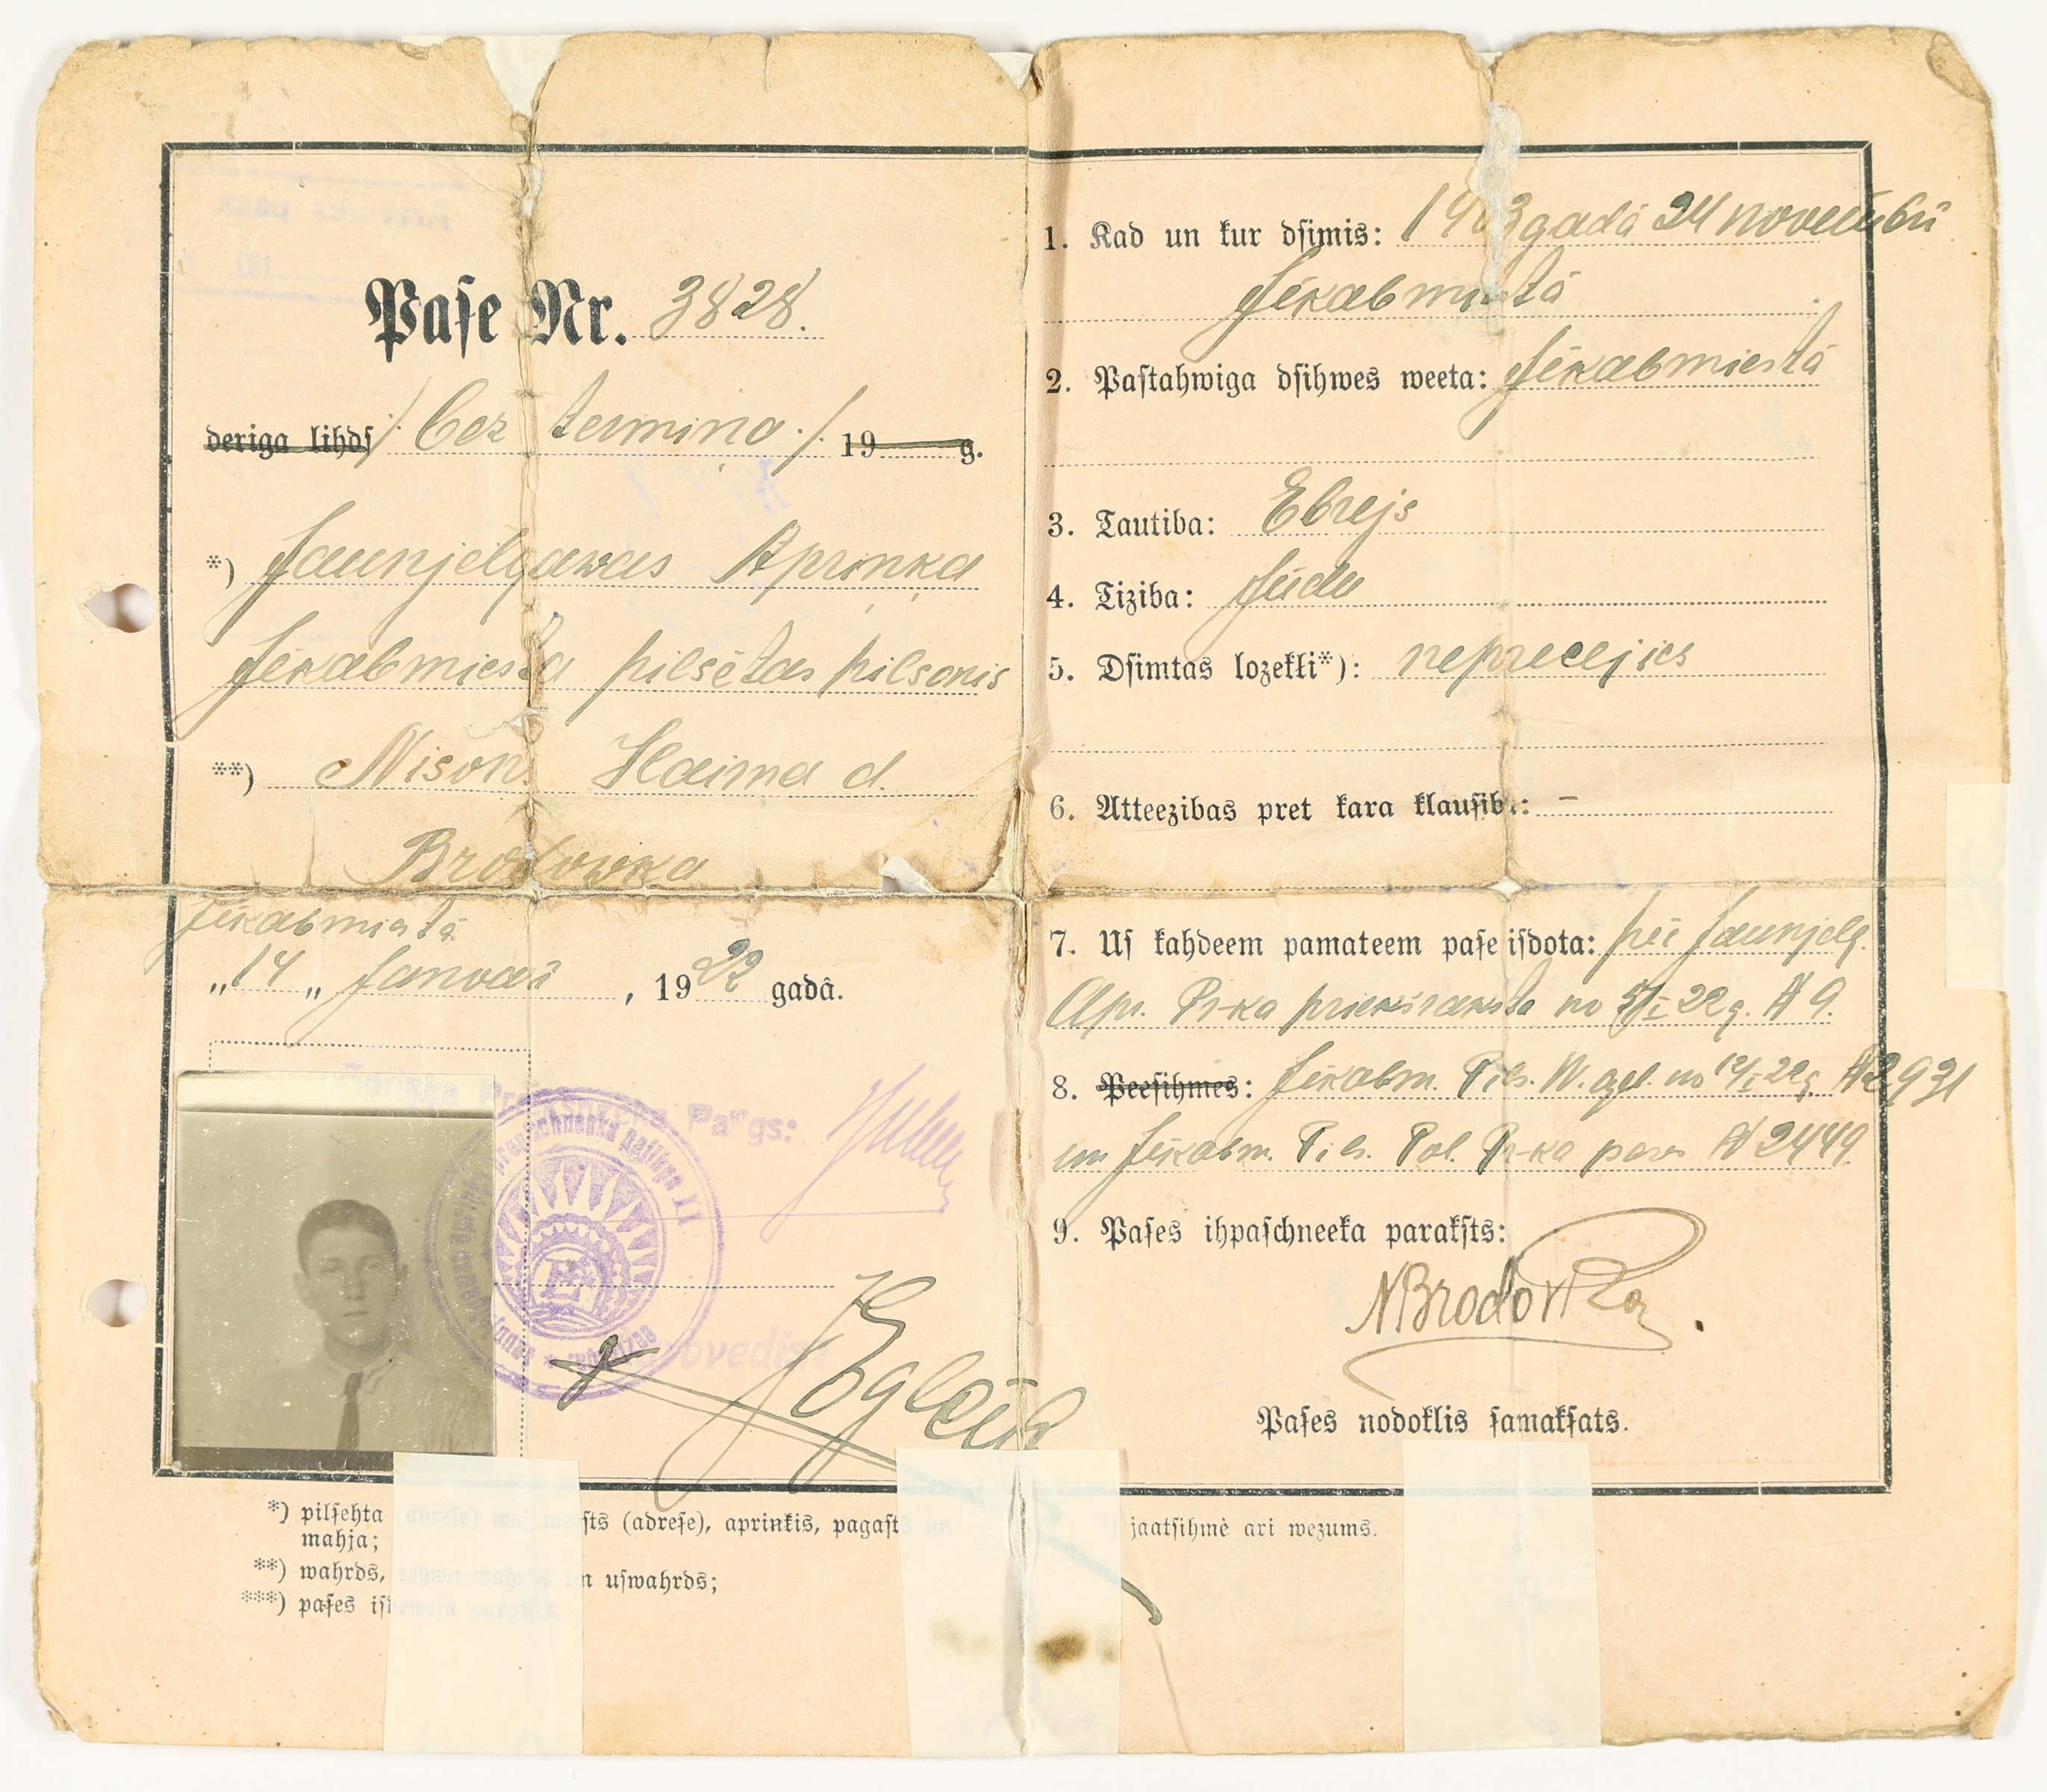 Paſe Nr. 3828.
deriga lihdſ /. bez termiņa ./ 19 g.
*) Jaunjelgawas Apriņķa
Jēkabmiesta pilsētas pilsonis
**) Nison Haima d.
Brodowka
Jēkabmiestā
„14„ Janvarī, 1922 gadâ.
Apriņķa Preekšneeka Pal'gs:
Darbvedis:
1. Kad un kur dſimis: 1903 gadā 24 novembrī
Jēkabmiestā
2. Paſtahwiga dſihwes weeta: Jēkabmiestā
3. Tautiba: Ebrejs
4. Tiziba: Jūdu
5. Dſimtas lozekli*): neprecejies
6. Atteezibas pret kara klauſibu: –
7. Uſ kahdeem pamateem paſe iſdota: pēc Jaunjelg.
Apr. Pr-ka priekšraksta no 5/I 22 g. № 9.
8. Peeſihmes: Jēkabm. Pils. W. apl. no 12/I 22 g. № 2931
un Jēkabm. Pils. Pol. Pr-ka pases № 2449
9. Paſes ihpaſchneeka parakſts:
N Brodovka
Paſes nodoklis ſamakſats.
*) pilſehta (adreſe) wai meeſts (adreſe), aprinkis, pagaſts un
mahja;
jaatſihmē ari wezums.
**) wahrds, tehwa wahrds un uſwahrds;
***) paſes iſdeweja parakſts.